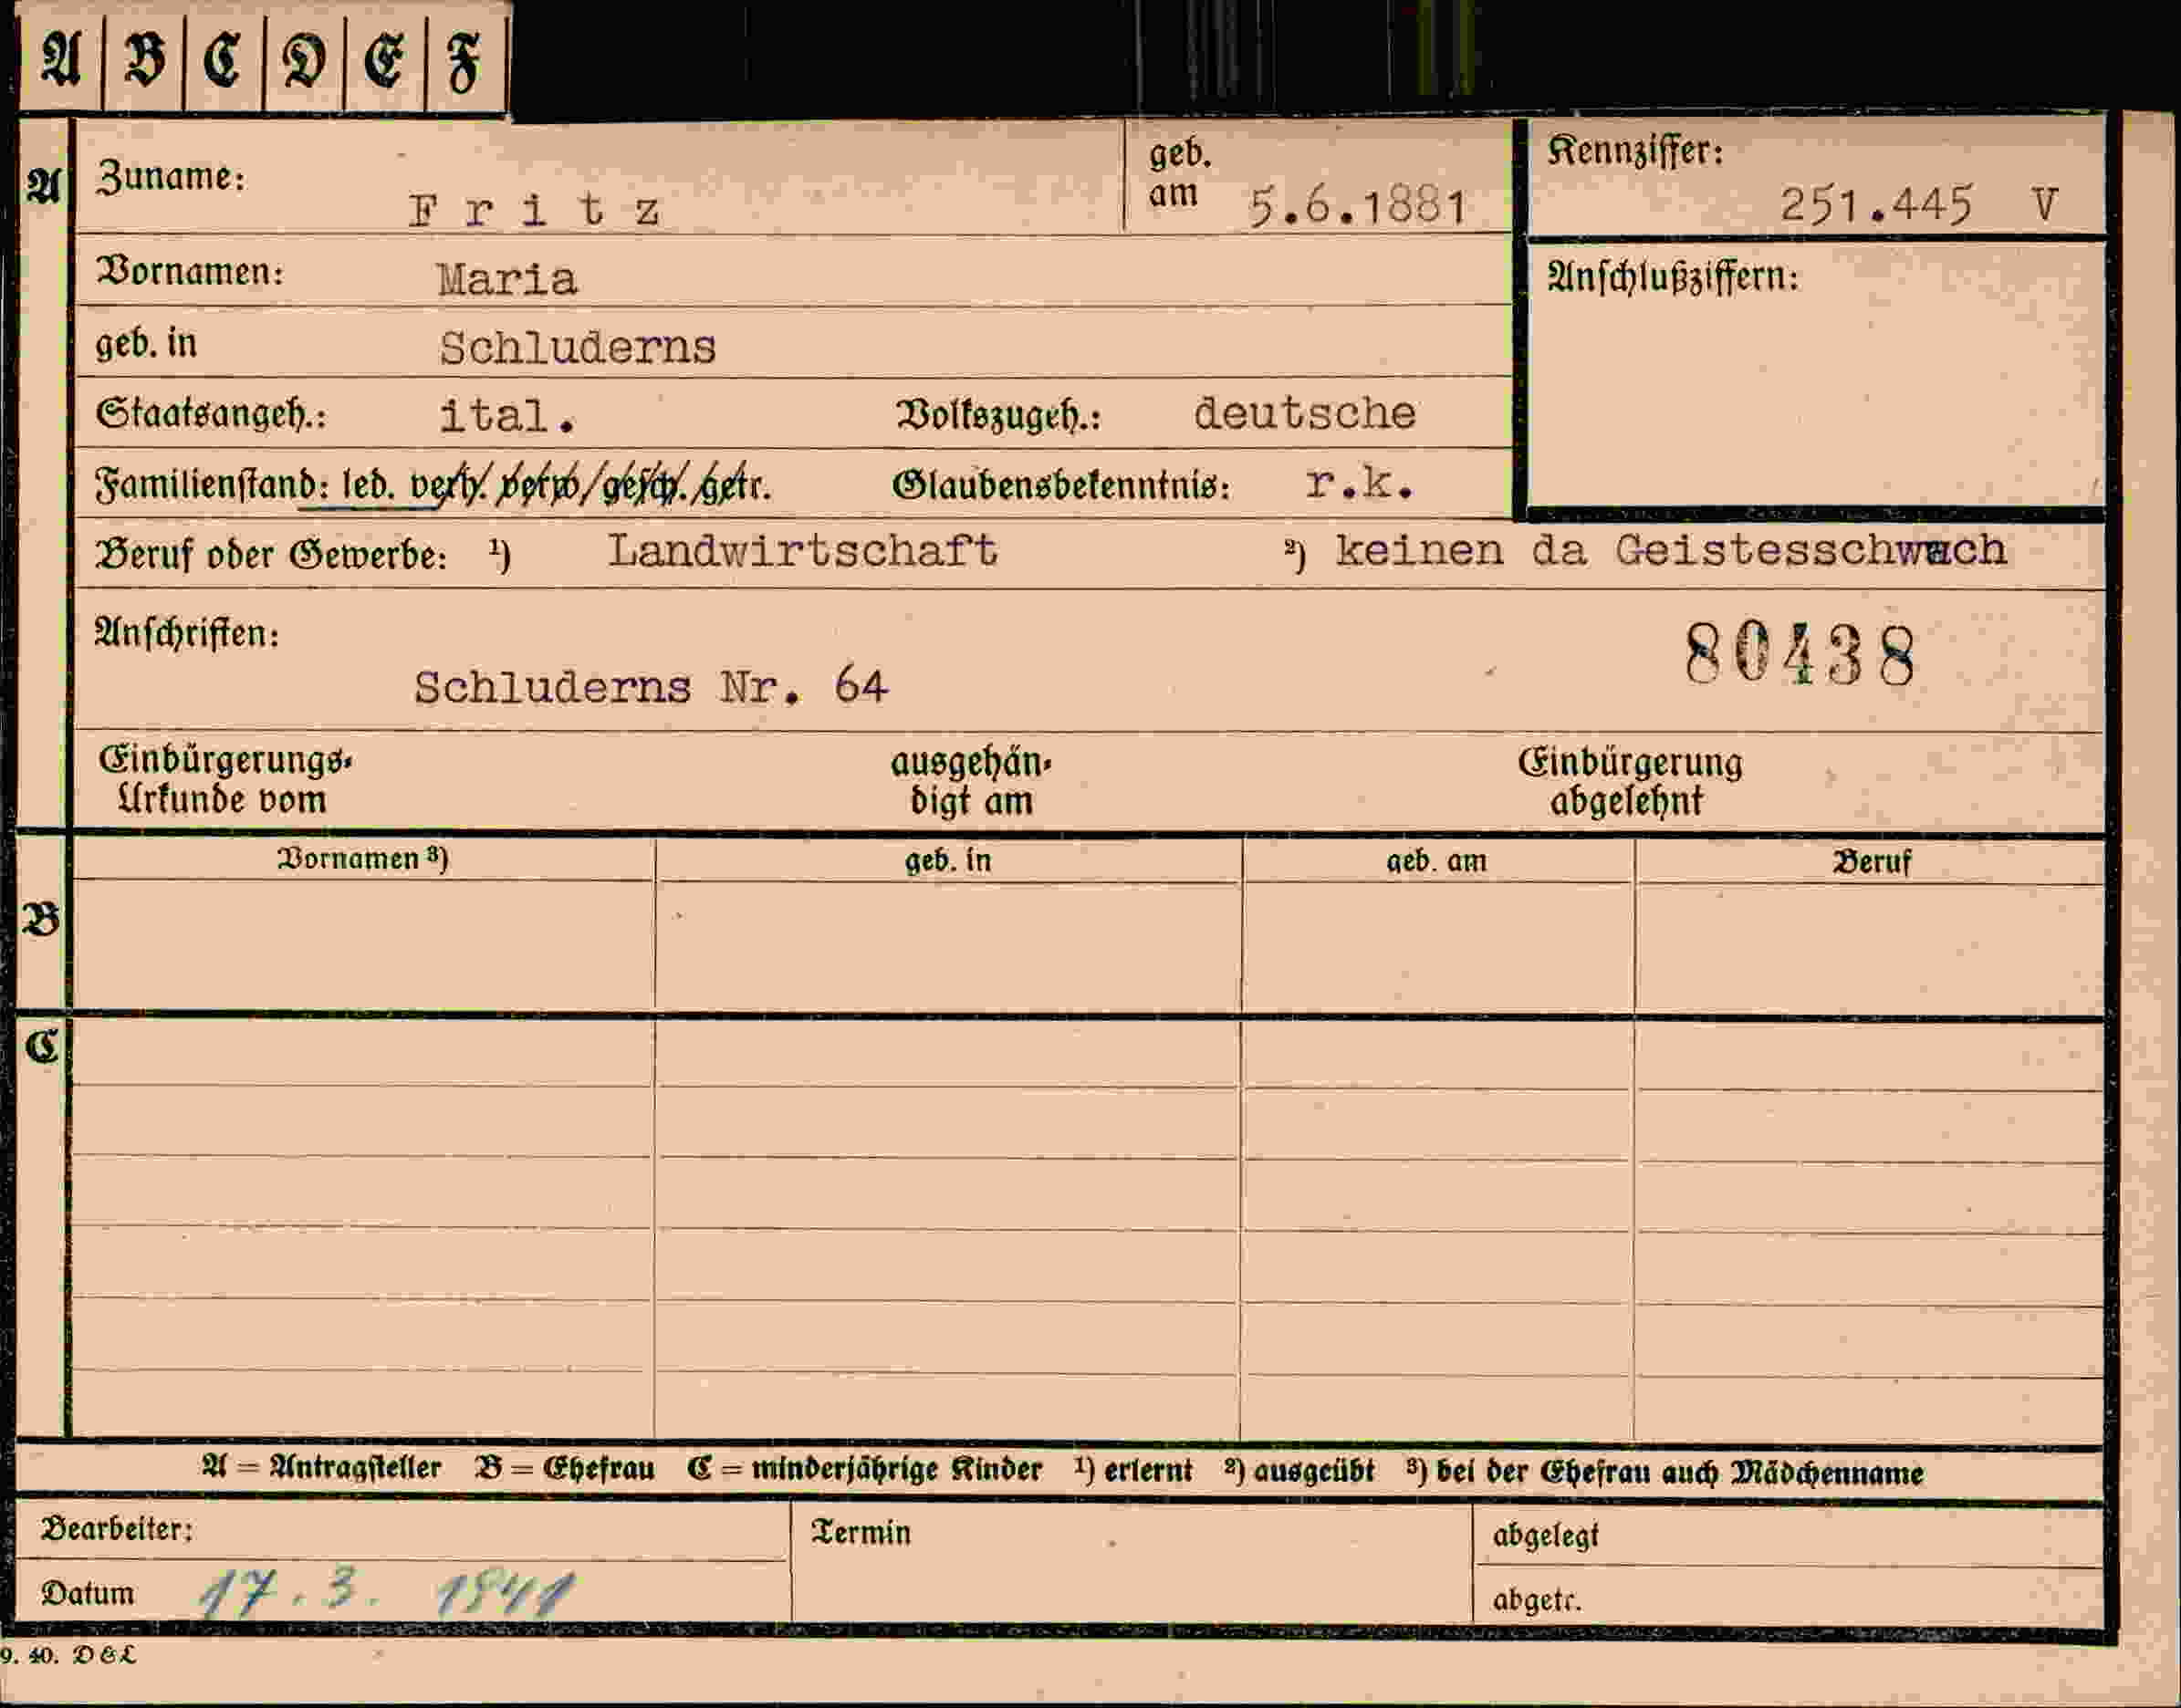 A B C D E F
A Zuname: Fritz geb. am 5.6.1881 Kennziffer: 251.445 V
Vornamen: Maria Anschlußziffern:
geb. in Schluderns
Staatsangeh.: ital. Volkszugeh.: deutsche
Familienstand: led. verh. verw. gesch. getr. Glaubensbekenntnis: r.k.
Beruf oder Gewerbe: ¹) Landwirtschaft ²) keinen da Geistesschwach
Anschriften: 80438
Schluderns Nr. 64
Einbürgerungs- ausgehän- Einbürgerung
Urkunde vom digt am abgelehnt
Vornamen ³) geb. in geb. am Beruf
B
C
A = Antragsteller B = Ehefrau C = minderjährige Kinder ¹) erlernt ²) ausgeübt ³) bei der Ehefrau auch Mädchenname
Bearbeiter: Termin abgelegt
Datum 17.3. 1941 abgetr.
9. 40. D & L